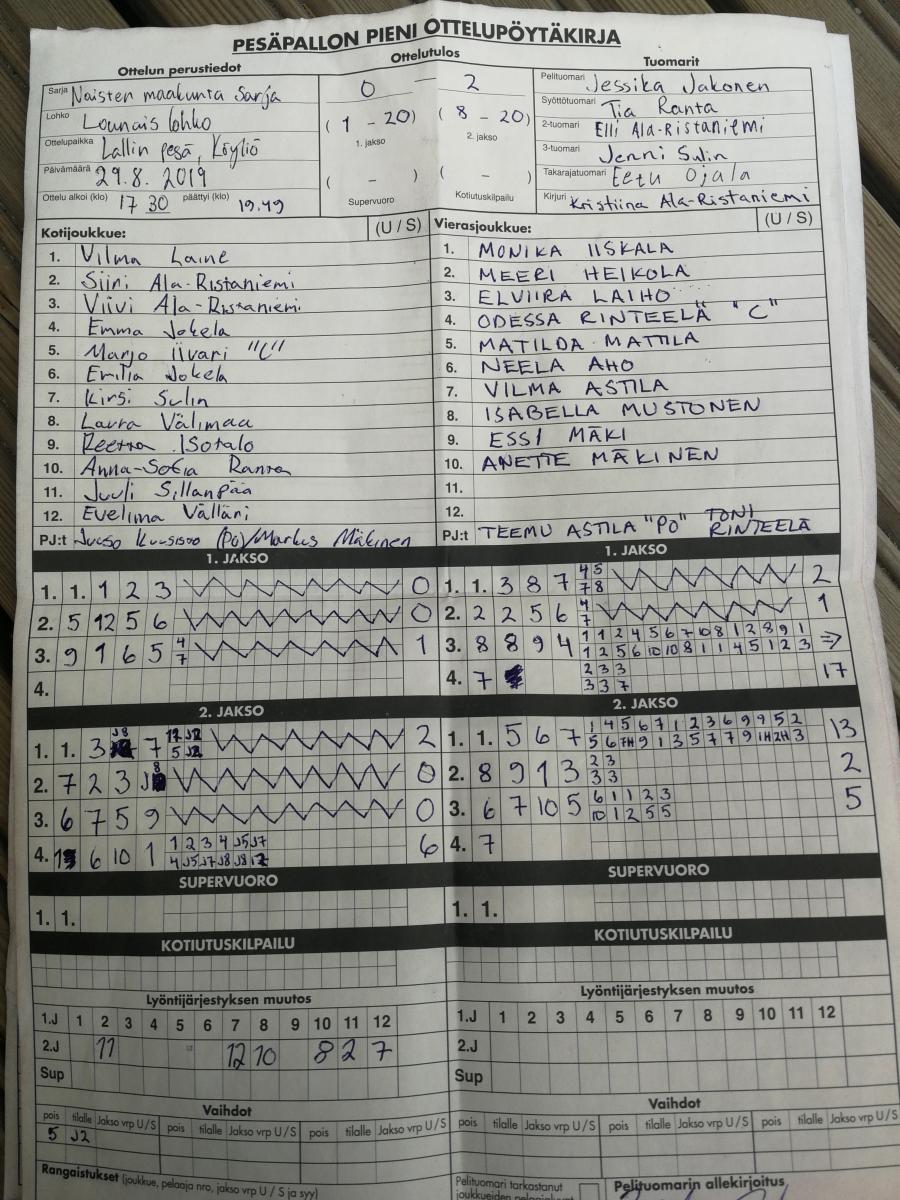 PESÄPALLON PIENI OTTELUPÖYTÄKIRJA
Ottelun perustiedot
Sarja Naisten maakunta sarja
Lohko Lounais lohko
Ottelupaikka Lallin pesä, Köyliö
Päivämäärä 29.8. 2019
Ottelu alkoi (klo) 17 30 päättyi (klo) 19.49
Ottelutulos
0 — 2
(1 - 20) (8 - 20)
1. jakso 2. jakso
( - ) ( - )
Supervuoro Kotiutuskilpailu
Tuomarit
Pelituomari Jessika Jakonen
Syöttötuomari Tia Ranta
2-tuomari Elli Ala-Ristaniemi
3-tuomari Jenni Sulin
Takarajatuomari Eetu Ojala
Kirjuri Kristiina Ala-Ristaniemi
Kotijoukkue: (U / S)
1. Vilma Laine
2. Siiri Ala-Ristaniemi
3. Viivi Ala-Ristaniemi
4. Emma Jokela
5. Marjo Iivari "C"
6. Emilia Jokela
7. Kirsi Sulin
8. Laura Välimaa
9. Reetta Isotalo
10. Anna-Sofia Ranta
11. Juuli Sillanpää
12. Eveliina Välläri
PJ:t Juuso Kuusisto (Po)/Markus Mäkinen
Vierasjoukkue: (U / S)
1. MONIKA IISKALA
2. MEERI HEIKOLA
3. ELVIIRA LAIHO
4. ODESSA RINTEELÄ "C"
5. MATILDA MATTILA
6. NEELA AHO
7. VILMA ASTILA
8. ISABELLA MUSTONEN
9. ESSI MÄKI
10. ANETTE MÄKINEN
11.
12.
PJ:t TEEMU ASTILA "PO" TONI RINTEELÄ
1. JAKSO
1. 1. 1 2 3 0
2. 5 12 5 6 0
3. 9 1 6 5 4 1
7
4.
1. JAKSO
1. 1. 3 8 7 4 5 2
7 8
2. 2 2 5 6 4 1
7
3. 8 8 9 4 1 1 2 4 5 6 7 10 8 1 2 8 9 1 =>
1 2 5 6 10 10 8 1 1 4 5 1 2 3
4. 7 2 3 3 17
3 3 7
2. JAKSO
1. 1. 3 J8 7 12 J2 2
5 J2
2. 7 2 3 J8 0
3. 6 7 5 9 0
4. 6 10 1 1 2 3 4 J5 J7 6
4 J5 J7 J8 J8 12
2. JAKSO
1. 1. 5 6 7 1 4 5 6 7 1 2 3 6 9 9 5 2 13
5 6 7H 9 1 3 5 7 7 9 1H 2H 3
2. 8 9 1 3 2 3 2
3 3
3. 6 7 10 5 6 1 1 2 3 5
10 1 2 5 5
4. 7
SUPERVUORO
1. 1.
SUPERVUORO
1. 1.
KOTIUTUSKILPAILU
KOTIUTUSKILPAILU
Lyöntijärjestyksen muutos
1.J 1 2 3 4 5 6 7 8 9 10 11 12
2.J 11 12 10 8 2 7
Sup
Lyöntijärjestyksen muutos
1.J 1 2 3 4 5 6 7 8 9 10 11 12
2.J
Sup
Vaihdot
pois tilalle Jakso vrp U / S pois tilalle Jakso vrp U / S pois tilalle Jakso vrp U / S
5 J2
Vaihdot
pois tilalle Jakso vrp U / S pois tilalle Jakso vrp U / S pois tilalle Jakso vrp U / S
Rangaistukset (joukkue, pelaaja nro, jakso vrp U / S ja syy)
Pelituomari tarkastanut
joukkueiden
Pelituomarin allekirjoitus